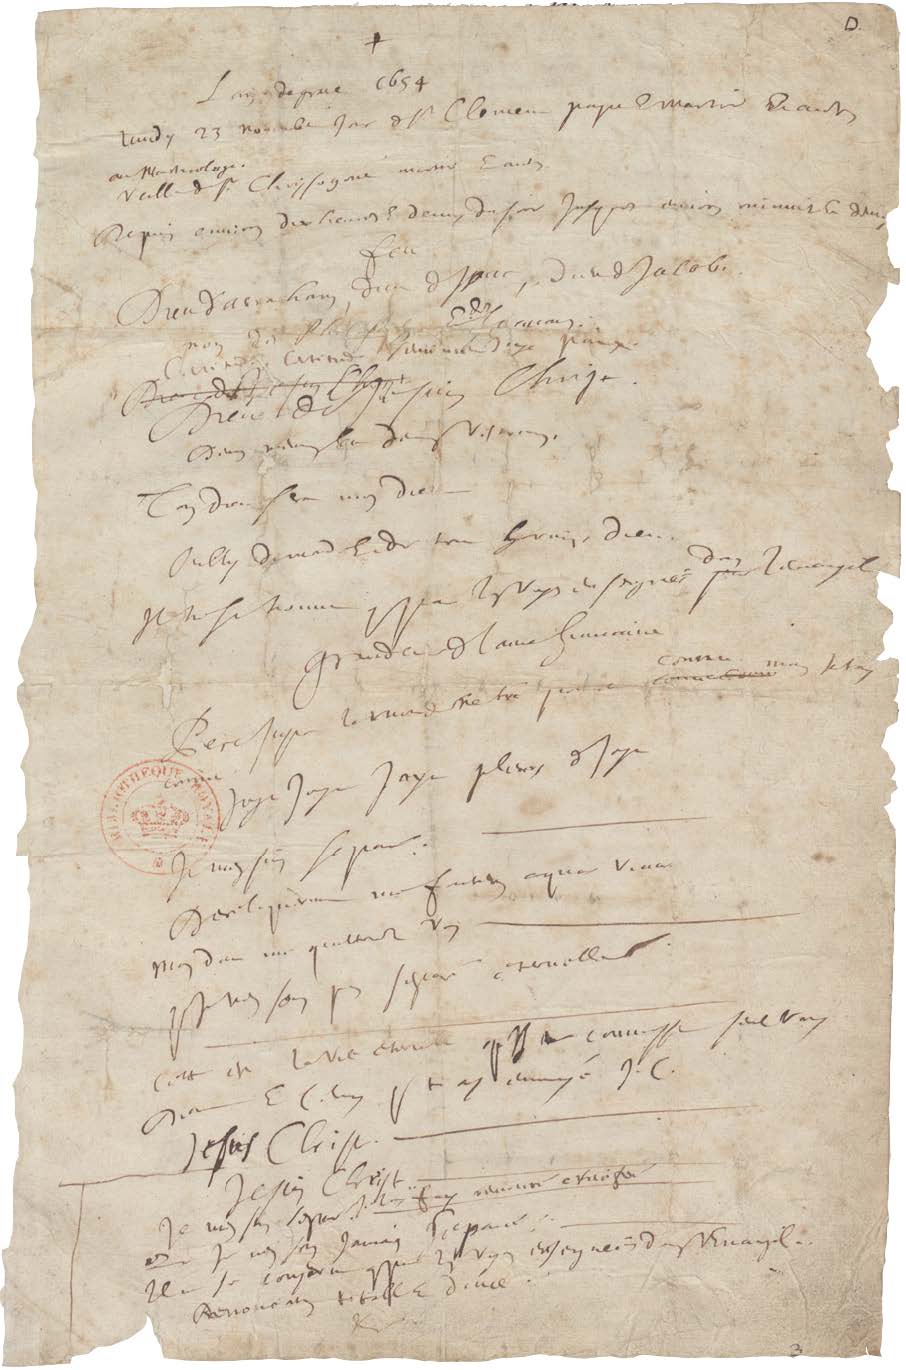 D.
+
L'an de grace 1654
Lundy 23 novembre jour de St Clement pape et martir et autres
au Martirologe.
Veille de St Chrysogone martir et autres.
Depuis environ dix heures et demy du soir jusques environ minuit et demy
feu
Dieu d'Abraham, Dieu d'Isaac, Dieu de Jacob.
non des philosophes et des savans.
Certitude, certitude sentiment Joye paix.
Dieu de Jesus Christ
Dieu de Jesus Christ.
Deum meum et Deum vestrum.
Ton Dieu sera mon Dieu
Oubly du monde et de tout hormis Dieu.
Il ne se trouve que par les voyes enseignées dans l'Evangile
Grandeur de l'ame humaine
Pere juste le monde ne t'a point connu mais je t'ay
connu
Joye Joye Joye pleurs de joye
Je m'en suis separé.
Dereliquerunt me fontem aquae vivae
Mon Dieu me quitterez vous
que je n'en sois pas separé eternellement.
Cette est la vie eternelle qu'ils te connoissent seul vray
Dieu et celuy que tu as envoyé J.C.
Jesus Christ.
Jesus Christ
Je m'en suis separé. je l'ay fuy renoncé crucifié
que je n'en sois jamais separé.
Il ne se conserve que par les voyes enseignées dans l'Evangile.
Renonciation totale et douce.
BIBLIOTHEQUE ROYALE
3